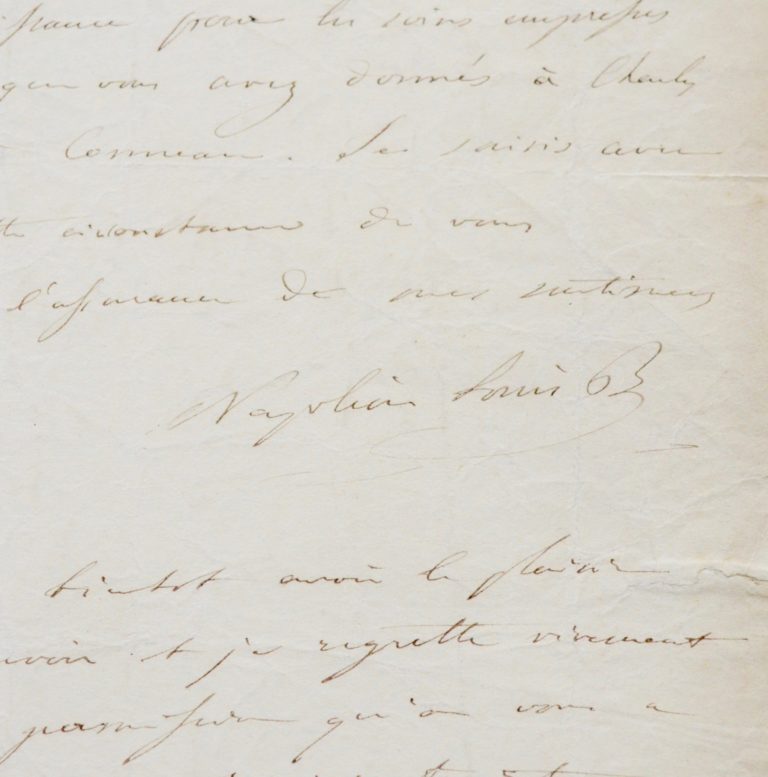 ssance pour les soins empressés
que vous avez donnés à Charles
Conneau. Je saisis avec
tte circonstance de vous
l'assurance de mes sentimens
Napoléon Louis B
bientot avoir le plaisir
evoir et je regrette vivement
permission qu'on vous a